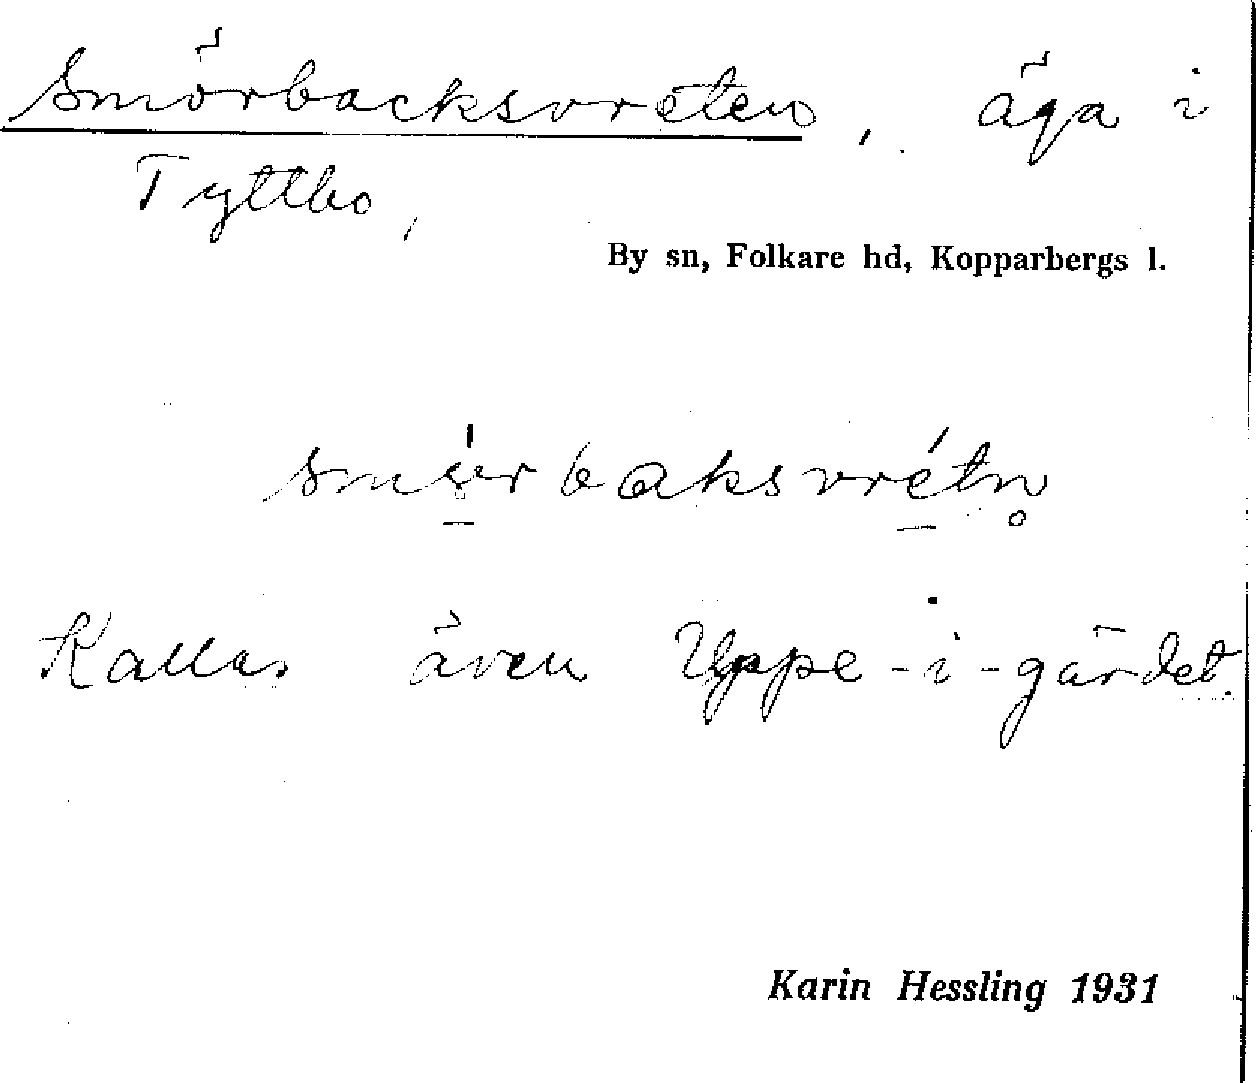 Smörbacksvreten, äga i
Tyttbo,
By sn, Folkare hd, Kopparbergs l.
Kallas även Uppe-i-gärdet.
Karin Hessling 1931